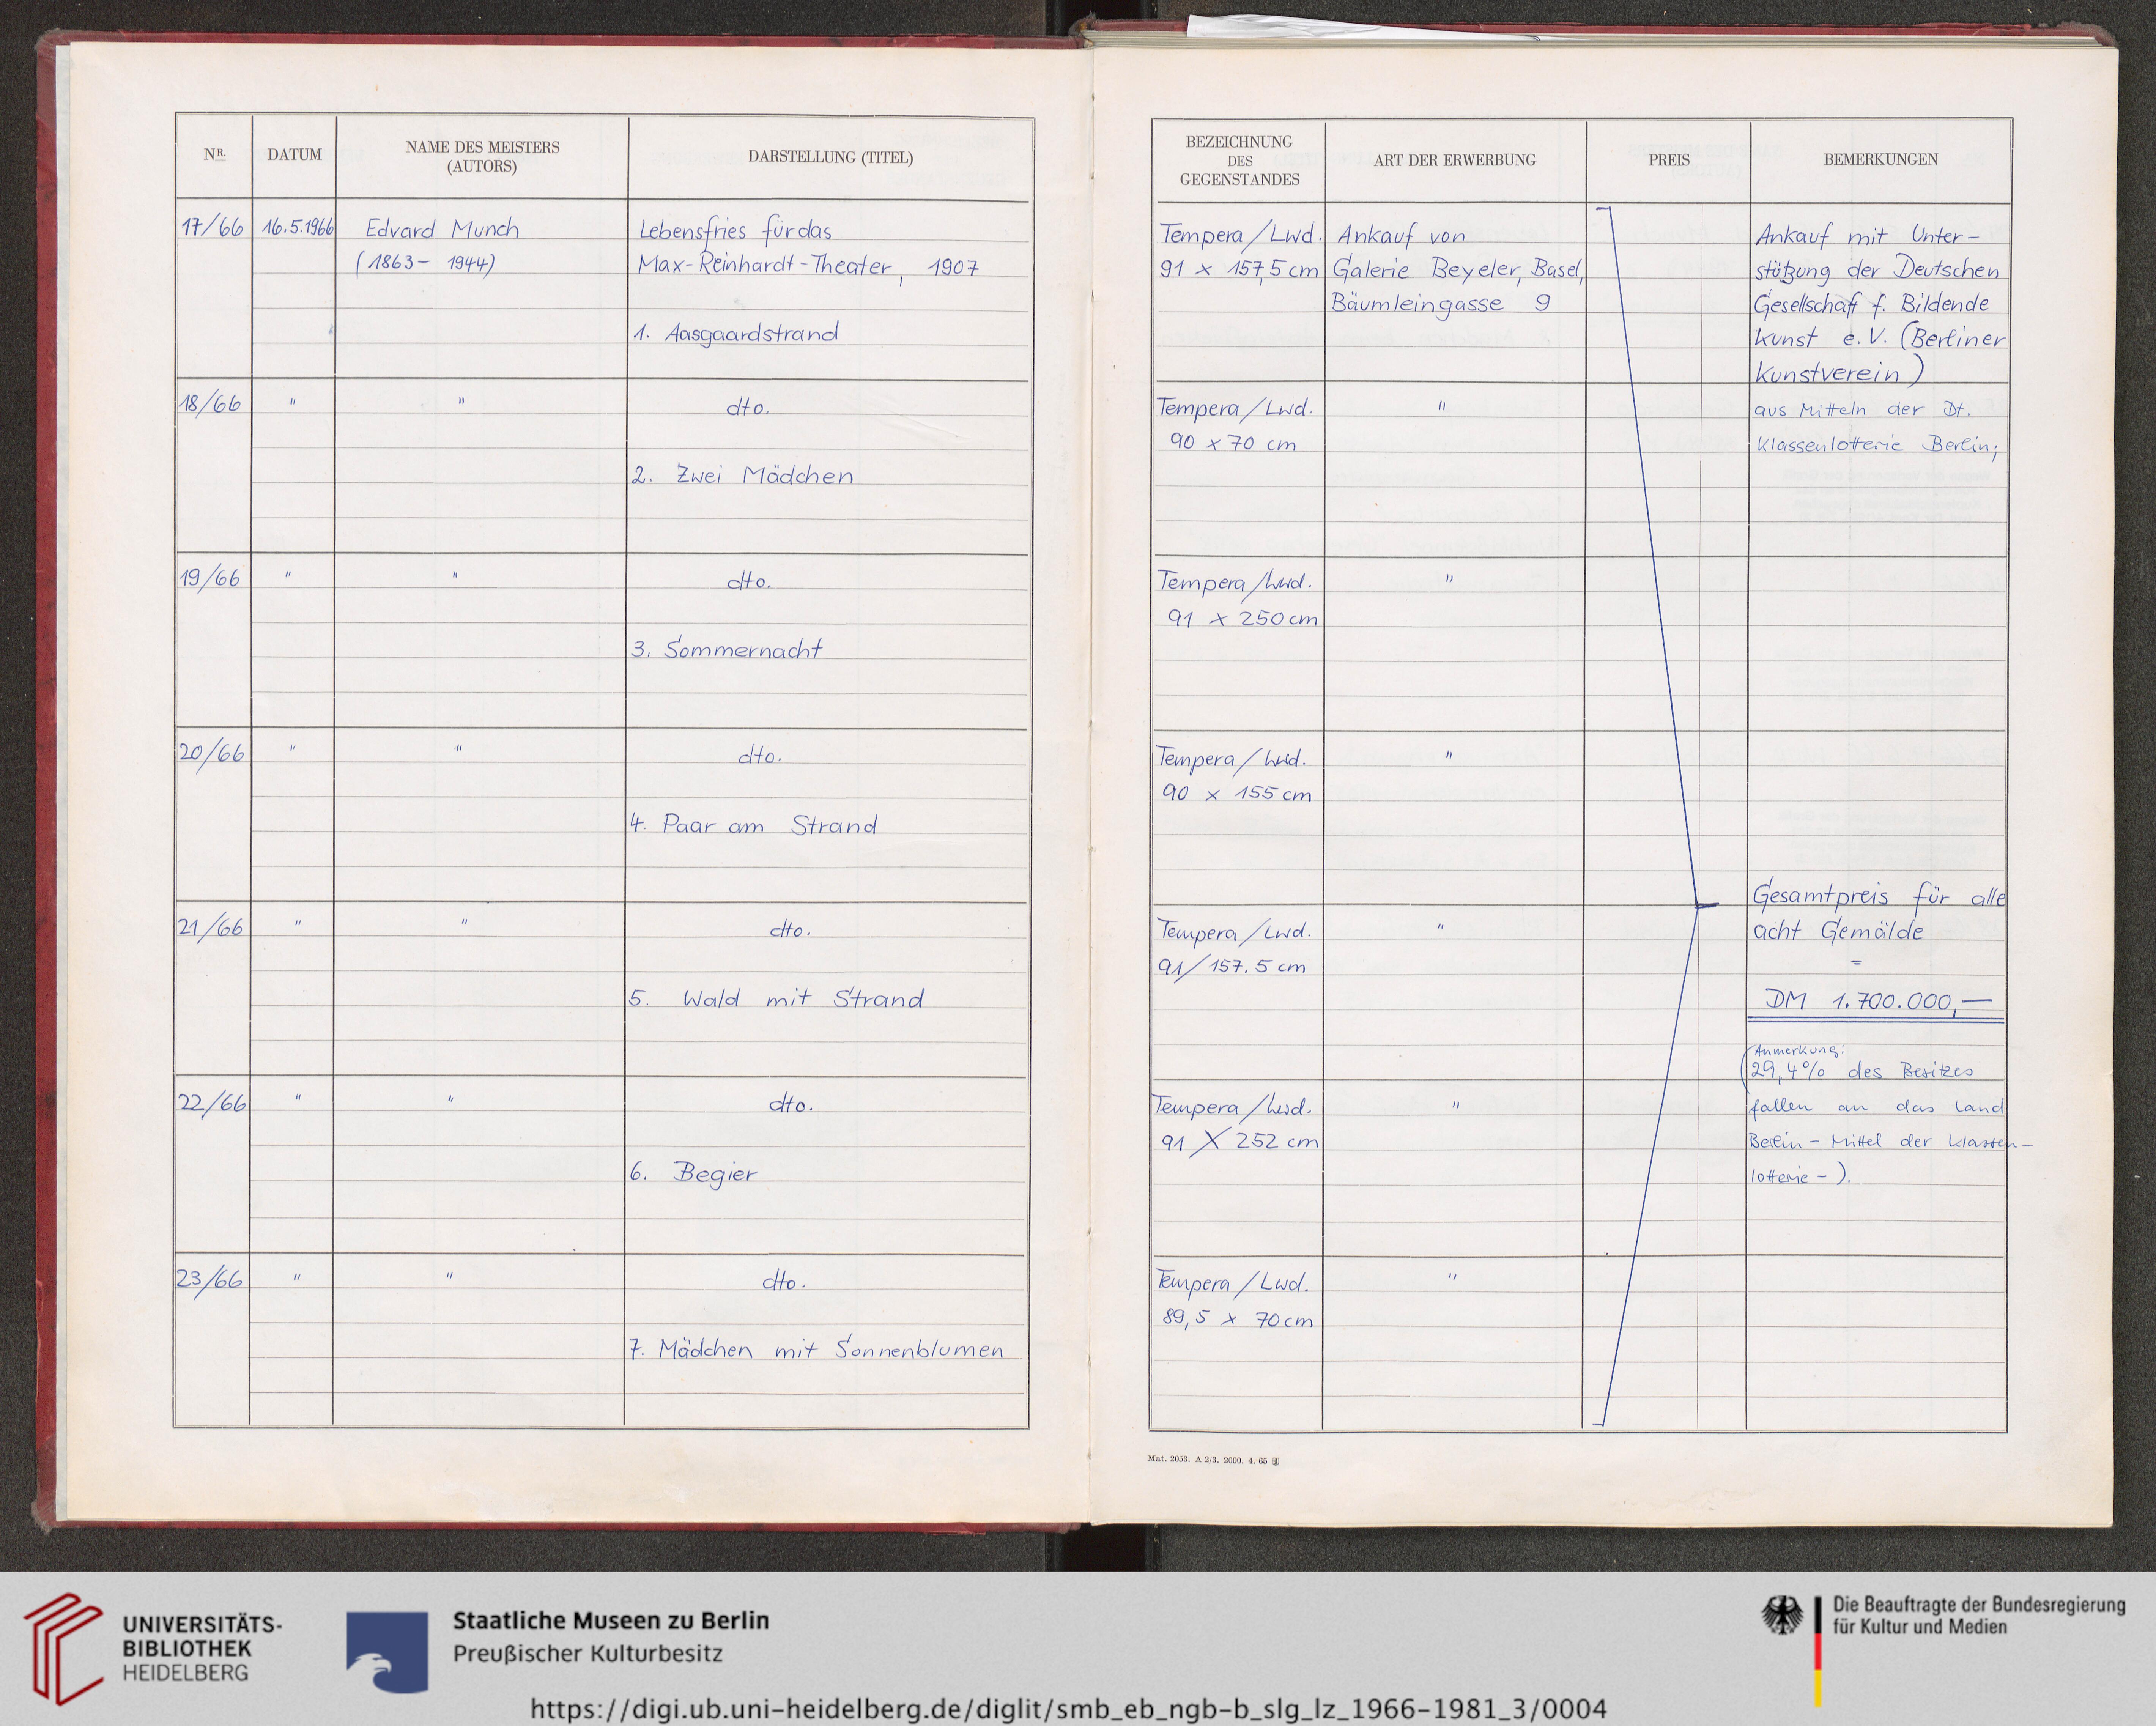 NR.
DATUM
NAME DES MEISTERS
(AUTORS)
DARSTELLUNG (TITEL)
17/66 16.5.1966 Edvard Munch Lebensfries für das
(1863 – 1944) Max-Reinhardt-Theater, 1907
1. Aasgaardstrand
18/66 " " dto.
2. Zwei Mädchen
19/66 " " dto.
3. Sommernacht
20/66 " " dto.
4. Paar am Strand
21/66 " " dto.
5. Wald mit Strand
22/66 " " dto.
6. Begier
23/66 " " dto.
7. Mädchen mit Sonnenblumen
BEZEICHNUNG
DES
GEGENSTANDES
ART DER ERWERBUNG
PREIS
BEMERKUNGEN
Tempera/Lwd. Ankauf von Ankauf mit Unter-
91 x 157,5 cm Galerie Beyeler, Basel, stützung der Deutschen
Bäumleingasse 9 Gesellschaft f. Bildende
Kunst e.V. (Berliner
Kunstverein)
Tempera/Lwd. " aus Mitteln der Dt.
90 x 70 cm Klassenlotterie Berlin;
Tempera/Lwd. "
91 x 250 cm
Tempera/Lwd. "
90 x 155 cm
Gesamtpreis für alle
Tempera/Lwd. " acht Gemälde
91/157.5 cm =
DM 1.700.000,—
(Anmerkung:
29,4% des Besitzes
Tempera/Lwd. " fallen an das Land
91 X 252 cm Berlin – Mittel der Klassen-
lotterie –).
Tempera/Lwd. "
89,5 x 70 cm
Mat. 2053. A 2/3. 2000. 4. 65
UNIVERSITÄTS-
BIBLIOTHEK
HEIDELBERG
Staatliche Museen zu Berlin
Preußischer Kulturbesitz
Die Beauftragte der Bundesregierung
für Kultur und Medien
https://digi.ub.uni-heidelberg.de/diglit/smb_eb_ngb-b_slg_lz_1966-1981_3/0004